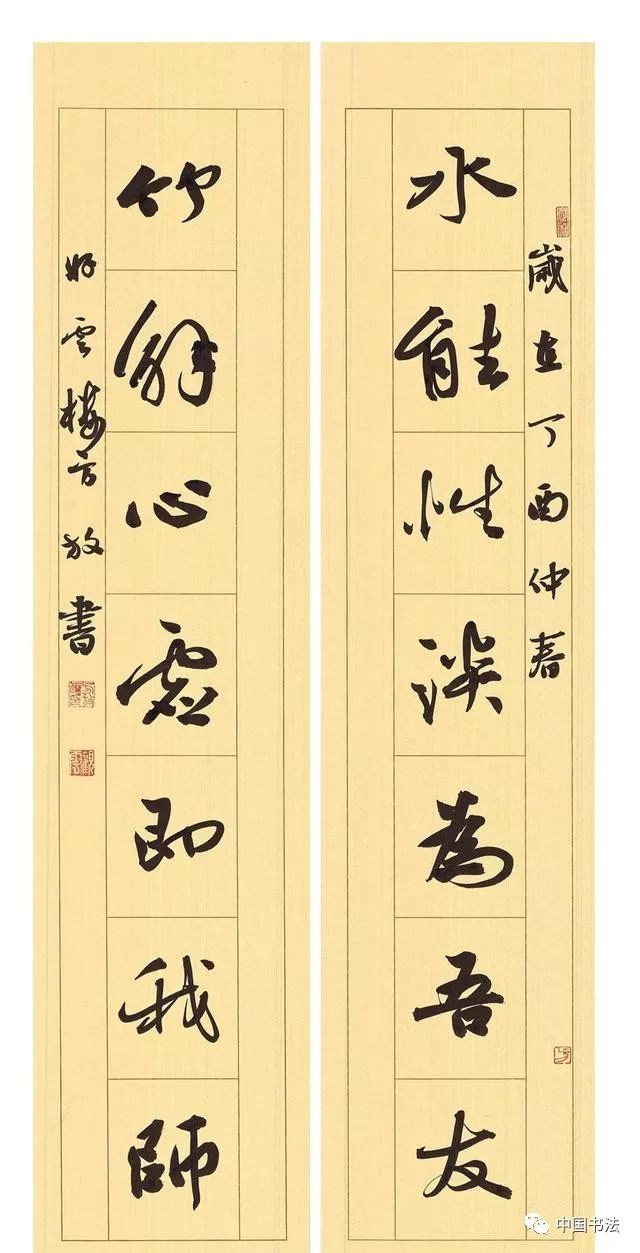 歲在丁酉仲春
水能性淡為吾友
竹解心虛即我師
好雲樓方放書
中国书法